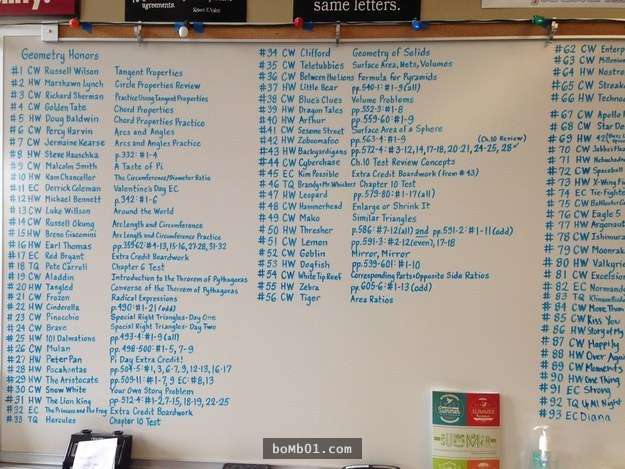 agreements.
same letters.
Geometry Honors
#1 CW Russell Wilson Tangent Properties
#2 HW Marshawn Lynch Circle Properties Review
#3 CW Richard Sherman Practice Using Tangent Properties
#4 CW Golden Tate Chord Properties
#5 HW Doug Baldwin Chord Properties Practice
#6 CW Percy Harvin Arcs and Angles
#7 CW Jermaine Kearse Arcs and Angles Practice
#8 HW Steve Hauschka p.332: #1-4
#9 CW Malcolm Smith A Taste of Pi
#10 HW Kam Chancellor The Circumference/Diameter Ratio
#11 EC Derrick Coleman Valentine's Day EC
#12 HW Michael Bennett p.342: #1-6
#13 CW Luke Willson Around the World
#14 CW Russell Okung Arc Length and Circumference
#15 HW Breno Giacomini Arc Length and Circumference Practice
#16 HW Earl Thomas #4-13, 15-16, 27-28, 31-32
#17 EC Red Bryant Extra Credit Boardwork
#18 TQ Pete Carroll Chapter 6 Test
#19 CW Aladdin Introduction to the Theorem of Pythagoras
#20 HW Tangled Converse of the Theorem of Pythagoras
#21 CW Frozen Radical Expressions
#22 HW Cinderella p.490: #1-21 (odd)
#23 CW Pinocchio Special Right Triangles-Day One
#24 CW Brave Special Right Triangles-Day Two
#25 HW 101 Dalmations pp.493-4: #1-9 (all)
#26 CW Mulan pp.498-500: #1-5, 7-9
#27 HW Peter Pan Pi Day Extra Credit!
#28 HW Pocahontas pp.504-5: #1, 3, 6-7, 9, 12-13, 16-17
#29 HW The Aristocats pp.509-11: #1-7, 9 EC: #8, 13
#30 CW Snow White Your Own Story Problem
#31 HW The Lion King pp.512-4: #1-2, 7-15, 18-19, 22-25
#32 EC The Princess and the Frog Extra Credit Boardwork
#33 TQ Hercules Chapter 10 Test
#34 CW Clifford Geometry of Solids
#35 CW Teletubbies Surface Area, Nets, Volumes
#36 CW Between the Lions Formula for Pyramids
#37 HW Little Bear pp.540-1: #1-9 (all)
#38 CW Blue's Clues Volume Problems
#39 HW Dragon Tales pp.552-3: #1-8
#40 HW Arthur pp.559-60: #1-9
#41 CW Sesame Street Surface Area of a Sphere
#42 HW Zoboomafoo pp.563-4: #1-9 (Ch.10 Review)
#43 HW Backyardigans pp.572-4: #3-12, 14, 17-18, 20-21, 24-25, 28
#44 CW Cyberchase Ch.10 Test Review Concepts
#45 EC Kim Possible Extra Credit (from #43)
#46 TQ Brandy+Mr. Whiskers Chapter 10 Test
#47 HW Leopard pp.579-80: #1-17 (all)
#48 CW Hammerhead Enlarge or Shrink It
#49 CW Mako Similar Triangles
#50 HW Thresher p.586: #7-12 (all) and pp.591-2: #1-11 (odd)
#51 CW Lemon pp.591-3: #2-12 (even), 17-18
#52 CW Goblin Mirror, Mirror
#53 HW Dogfish pp.599-601: #1-10
#54 CW White Tip Reef Corresponding Parts+Opposite Side Ratios
#55 HW Zebra pp.605-6: #1-13 (odd)
#56 CW Tiger Area Ratios
#62 CW Enterp
#63 CW Millenniu
#64 HW Nostro
#65 CW Streak
#66 HW Techno
#67 CW Apollo
#68 CW Star De
#69 HW
#70 CW
#71 HW
#72 CW Spaceball
#73 HW X-Wing Fi
#75 CW
#76 CW Eagle 5
#77 HW Argonaut
#78 CW Ishimura
#79 CW Moonrak
#80 HW Valkyri
#81 CW Excelsior
#82 EC Normand
#83 TQ
#84 CW More Than
#85 CW Kiss You
#86 HW Story of My
#87 CW Happily
#88 HW Over Agai
#89 CW Moments
#90 HW One Thing
#91 EC Strong
#92 TQ Up All Night
#93 EC Diana
SUMMER
boMb01.com